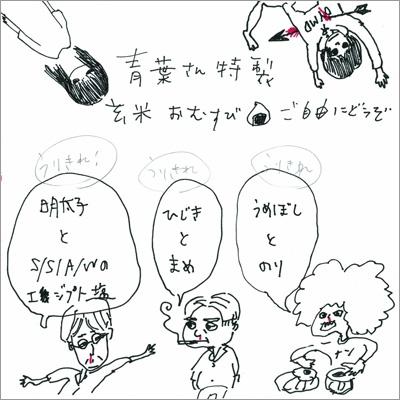 青葉さん特製
玄米 おむすび ご自由にどうぞ
うりきれ!
うりきれ
うりきれ
明太子
と
S/S/A/W の
ひじき
と
まめ
うめぼし
と
のり